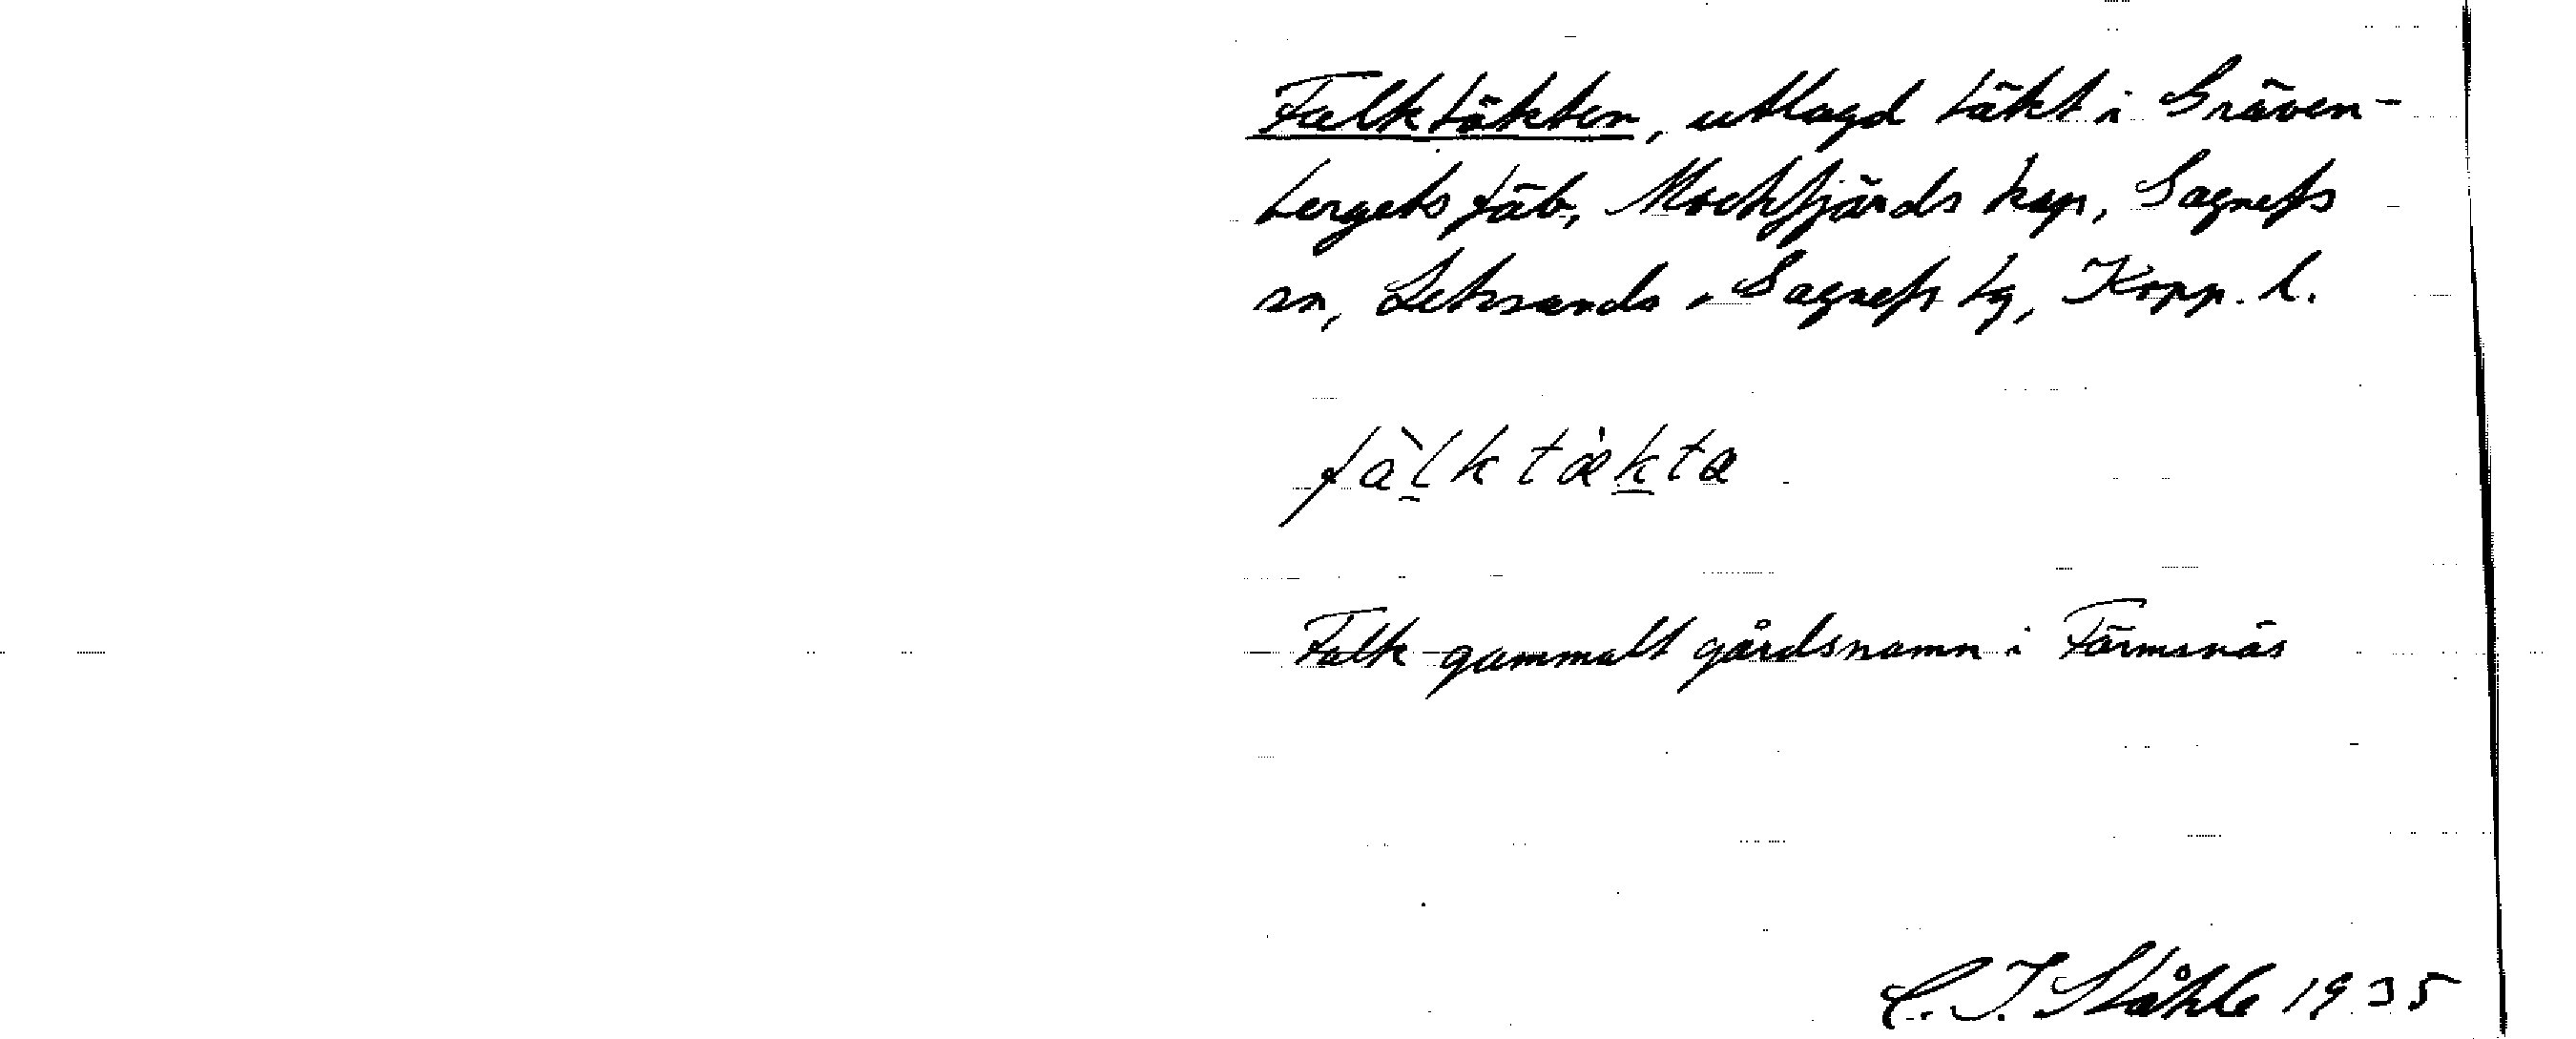 Falktäkten, utlagd täkt i Gräven-
bergets fäb, Mockfjärds kap, Gagnefs
sn, Leksands o Gagnefs tg, Kopp. l.
fàl̠k tæ̀k̠ta
Falk gammalt gårdsnamn i Färmsnäs
C. I. Ståhle 1935